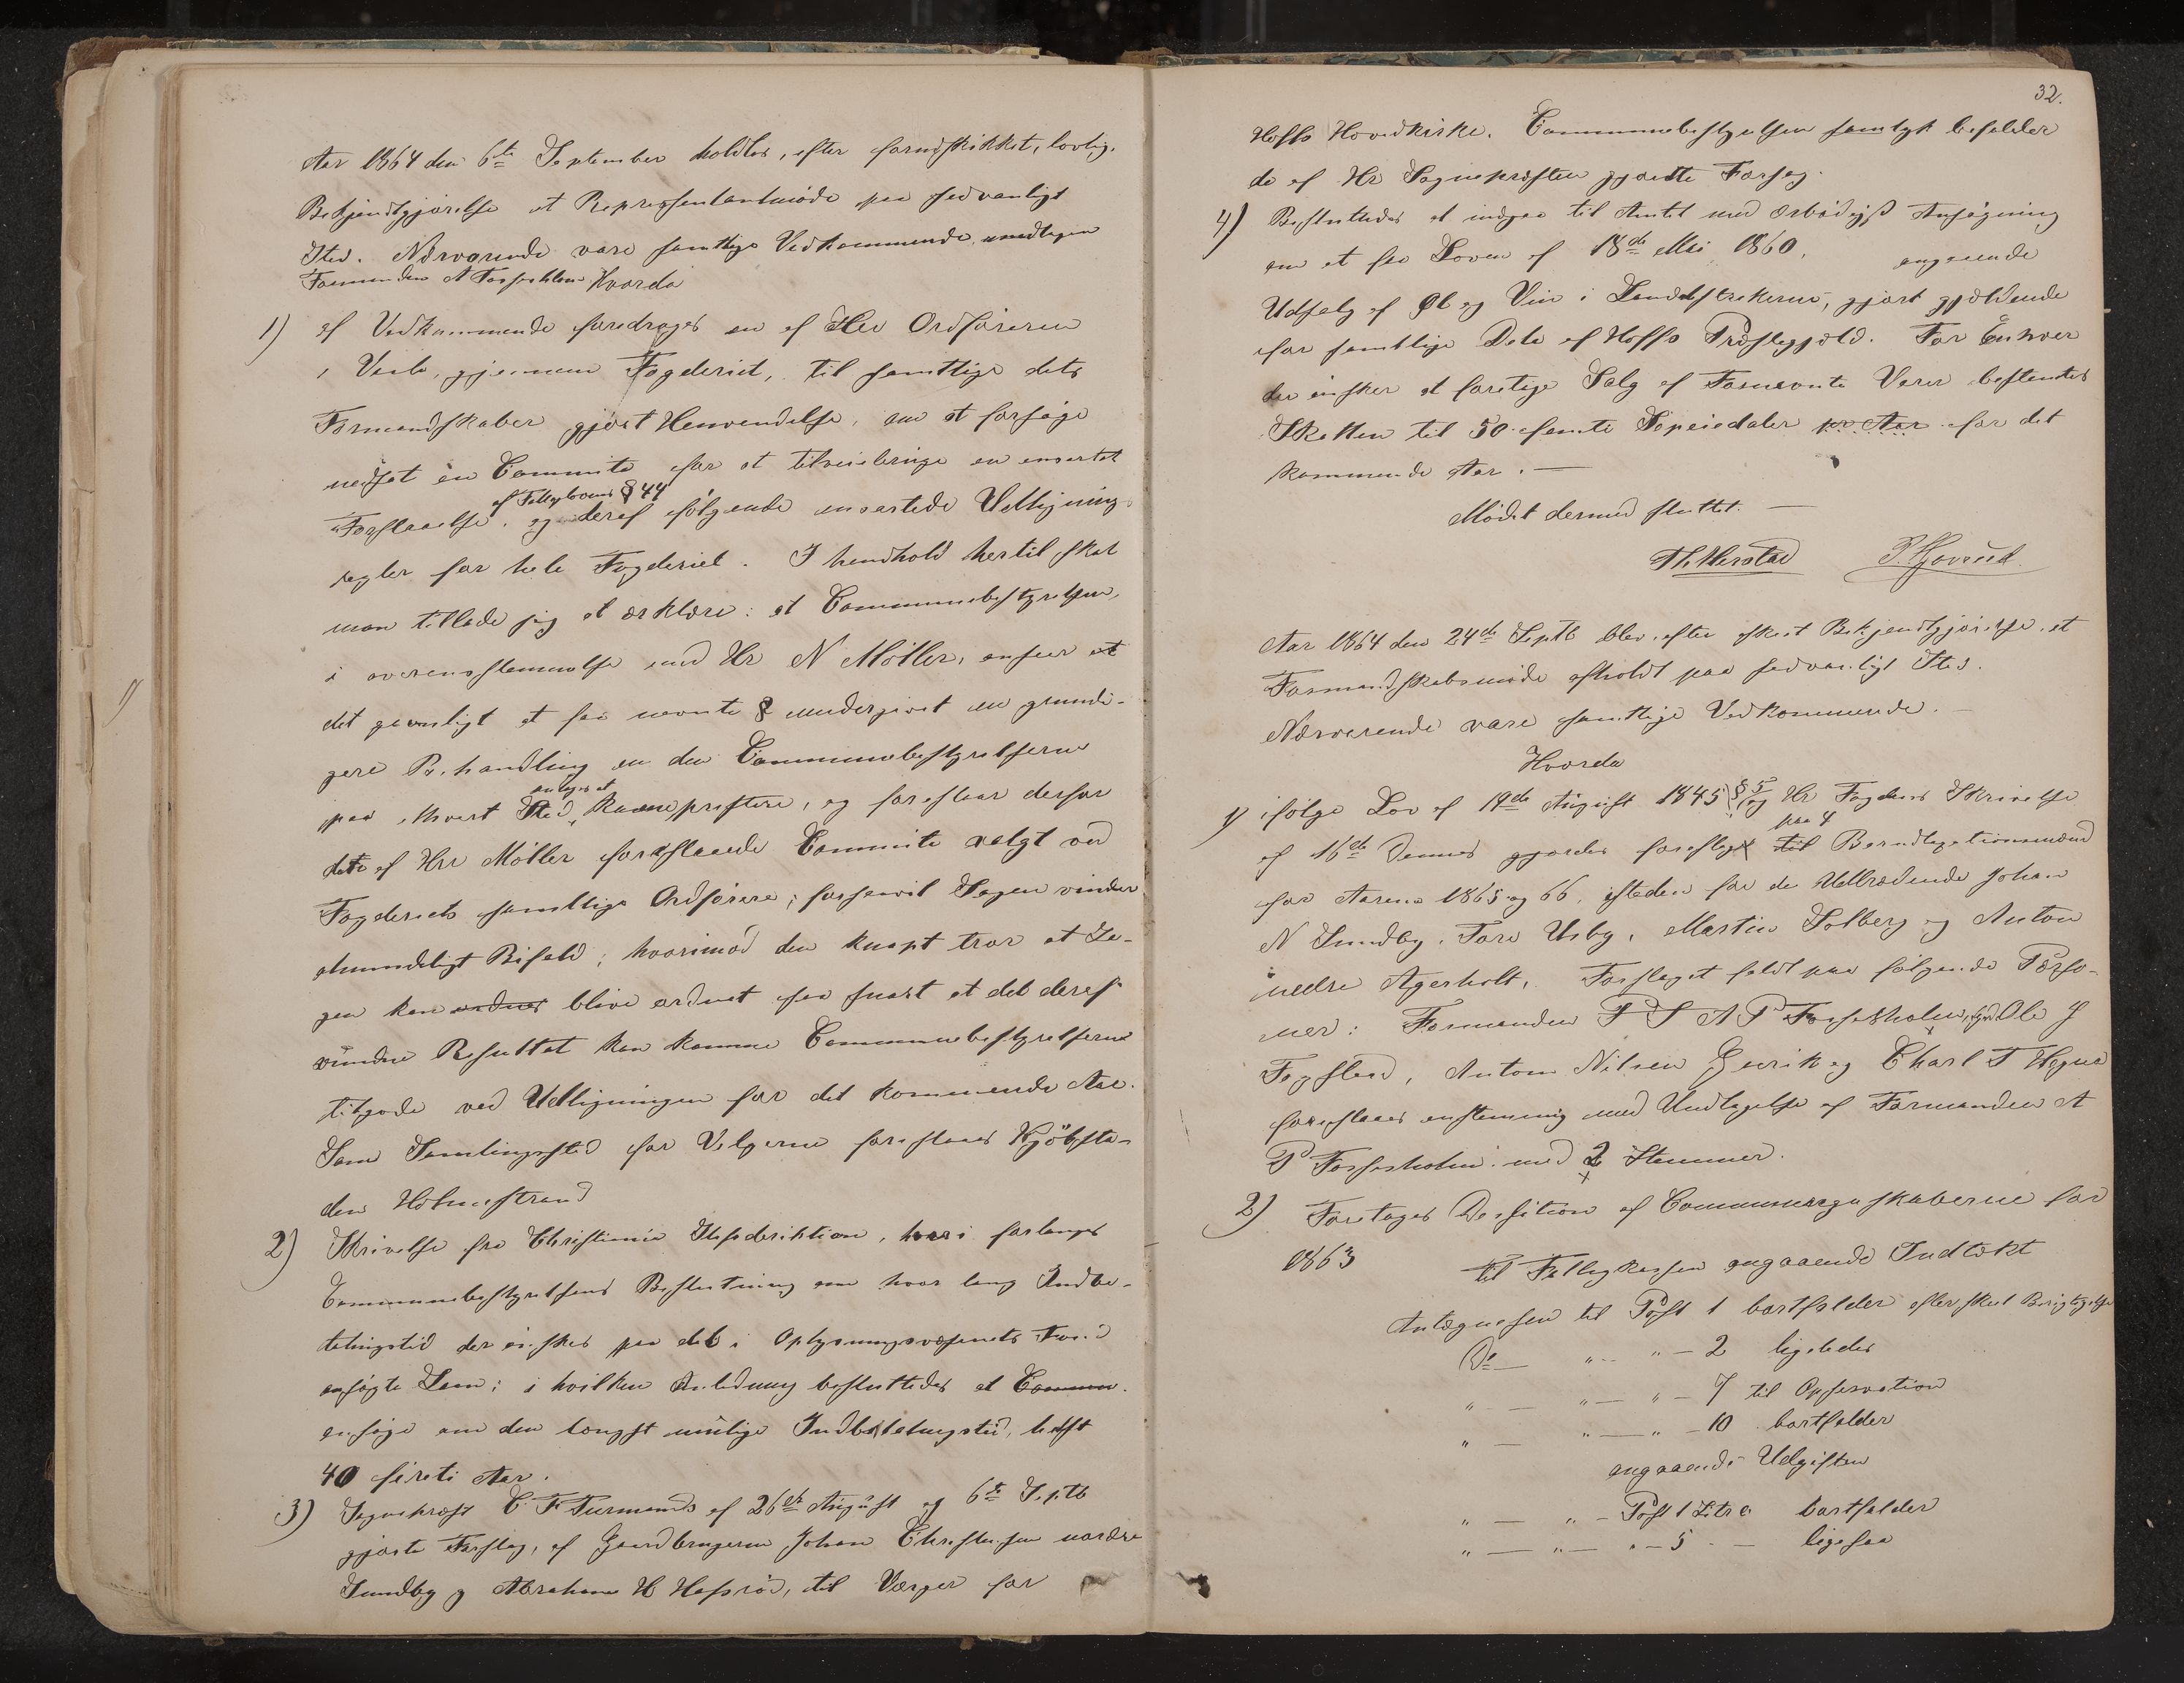 Aar 1864 den 6te September holdtes, efter forudskikket, lovlig
Bekjendtgjørelse et Repræsentantmøde paa sedvanligt
Sted. Nærværende vare samtlige Vedkommende, undtagen
Formanden A Fossesholm Hvorda
1) af Vedkommende foredroges en af Hr Ordføreren
i Verle, gjennem Fogderiet, til samttlige dets
Formandskaber gjort Henvendelse, om at forsøge
nedsat en Committe for at tilveiebringe en ensartet
af Fattiglovens § 44
Forstaaelse og deraf følgende ensartede Udligning-
regler for hele Fogderiet. I henhold hertil skal
man tillade sig at ærklære: at Communebestyrelsen,
i overensstemmelse med Hr N Møller, anseer at
det gavnligt at faa nevnte § undergivet en grundi-
gere Behandling en den Communebestyrelserne
paa ethvert Sted antages at kunne præstere, og foreslaar derfor
dette af Hr Møller foreslaaede Committe valgt ved
Fogderiets samtlige Ordførere, forsaavit Sagen vinder
almindeligt Bifald; hvorimod den knapt tror at Sa-
gen kan ordnes blive ordnet saa snart at det deraf
vundne Resultat kan komme Communebestyrelserne
tilgode ved Udligningen for det kommende Aar.
Som Samlingssted for Velgerne foreslaaes Kjøbsta-
den Holmestrand
2) Skrivelse fra Christiania Stiftsdirektion, hvori forlanges
Communebestyrelsens Beslutning om hvor lang Indbe-
talingstid der ønskes paa det i Oplysningsvæsenets Fond
ansøgte Laan; i hvilken Anledning besluttedes at Commun.
ansøge om den længst mulige Indbetalingstid, helst
40 firti Aar.
3) Sognepræst C F Turmands af 26de August og 6te Septb
gjorte Forslag, af Gaardbrugerne Johan Christensen nordre
Sundby og Abraham H Hafsrød, til Værger for
32.
Hoffs Hovedkirke. Communebestyrelsen samtligt bifalder
de af Hr Sognepræsten gjorte Forslag.
4) Besluttedes at indgaa til Amtet med ærbødigst Ansøgning
om at faa Loven af 18de Mai 1860, angaaende
Udsalg af Øl og Vin i Landdistrikterne, gjort gjældende
for samtlige Dele af Hoffs Præstegjæld. For Enhver
der ønsker at foretage Salg af Fornevnte Varer bestemtes
Skatten til 50 femti Speciedaler pr Aar for det
kommende Aar.
Mødet dermed sluttet.
Th. Herstad P. Gjovred
Aar 1864 den 24de Septb blev efter skeet Bekjendtgjørelse, et
Formandskabsmøde afholdt paa sedvanligt Sted.
Nærværende vare samtlige Vedkommende.
Hvorda
1) ifølge Lov af 19de August 1845 § 5 og Hr Fogdens Skrivelse
af 16de Dennes gjordes forslag til paa 4 Barndtaxtionsmænd
for Aarene 1865 og 66, isteden for de Udtrædende Johan
N Sundby, Tore Usby, Martin Solberg og Anton
nedre Agerholt. Forslaget faldt paa følgende Perso-
ner: Formanden F S A P Fossesholm, Ole J
Fogstad, Anton Nilsen Gjerik og Charl T Hegna
foreslaaes enstemmig med Undtagelse af Formanden A
P Fossesholm med 2 Stemmer.
2) Foretoges Desition af Communeregnskaberne for
1863 til Fattigkassen angaaende Indtækt
Antægnelsen til Post 1 bortfalder efter skeet Berigtigelse
Do — " — " — 2 ligeledes
" — " — " — 7 til Opservation
" — " — " — 10 bortfalder
angaaende Udgiften
" — " — Post 1 Litr a bortfalder
" — " — " — 5 — ligesaa